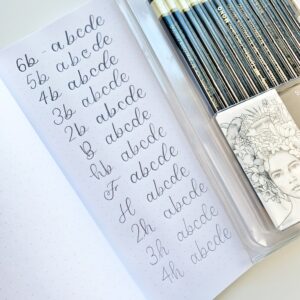 6b - abcde
5b abcde
4b abcde
3b abcde
2b abcde
B abcde
hb abcde
F abcde
H abcde
2h abcde
3h abcde
4h abcde